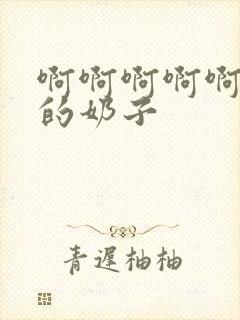 啊啊啊啊啊
的奶子
青遲柚柚